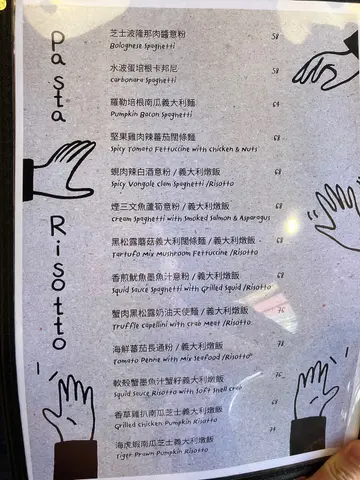 Pasta
芝士波隆那肉醬意粉 58
Bolognese Spaghetti
水波蛋培根卡邦尼 58
Carbonara Spaghetti
羅勒培根南瓜義大利麵 64
Pumpkin Bacon Spaghetti
堅果雞肉辣蕃茄闊條麵 68
Spicy Tomato Fettuccine with Chicken & Nuts
蜆肉辣白酒意粉 / 義大利燉飯 68
Spicy Vongole Clam Spaghetti /Risotto
煙三文魚蘆筍意粉 / 義大利燉飯 68
Cream Spaghetti with Smoked Salmon & Asparagus
Risotto
黑松露蘑菇義大利闊條麵 / 義大利燉飯 68
Tartufo Mix Mushroom Fettuccine /Risotto
香煎魷魚墨魚汁意粉 / 義大利燉飯 68
Squid Sauce Spaghetti with Grilled Squid /Risotto
蟹肉黑松露奶油天使麵 / 義大利燉飯 75
Truffle Capellini with Crab Meat /Risotto
海鮮蕃茄長通粉 / 義大利燉飯 78
Tomato Penne with Mix Seafood /Risotto
軟殼蟹墨魚汁蟹籽義大利燉飯 75
Squid Sauce Risotto with Soft Shell Crab
香草雞扒南瓜芝士義大利燉飯 68
Grilled Chicken Pumpkin Risotto
海虎蝦南瓜芝士義大利燉飯
Tiger Prawn Pumpkin Risotto